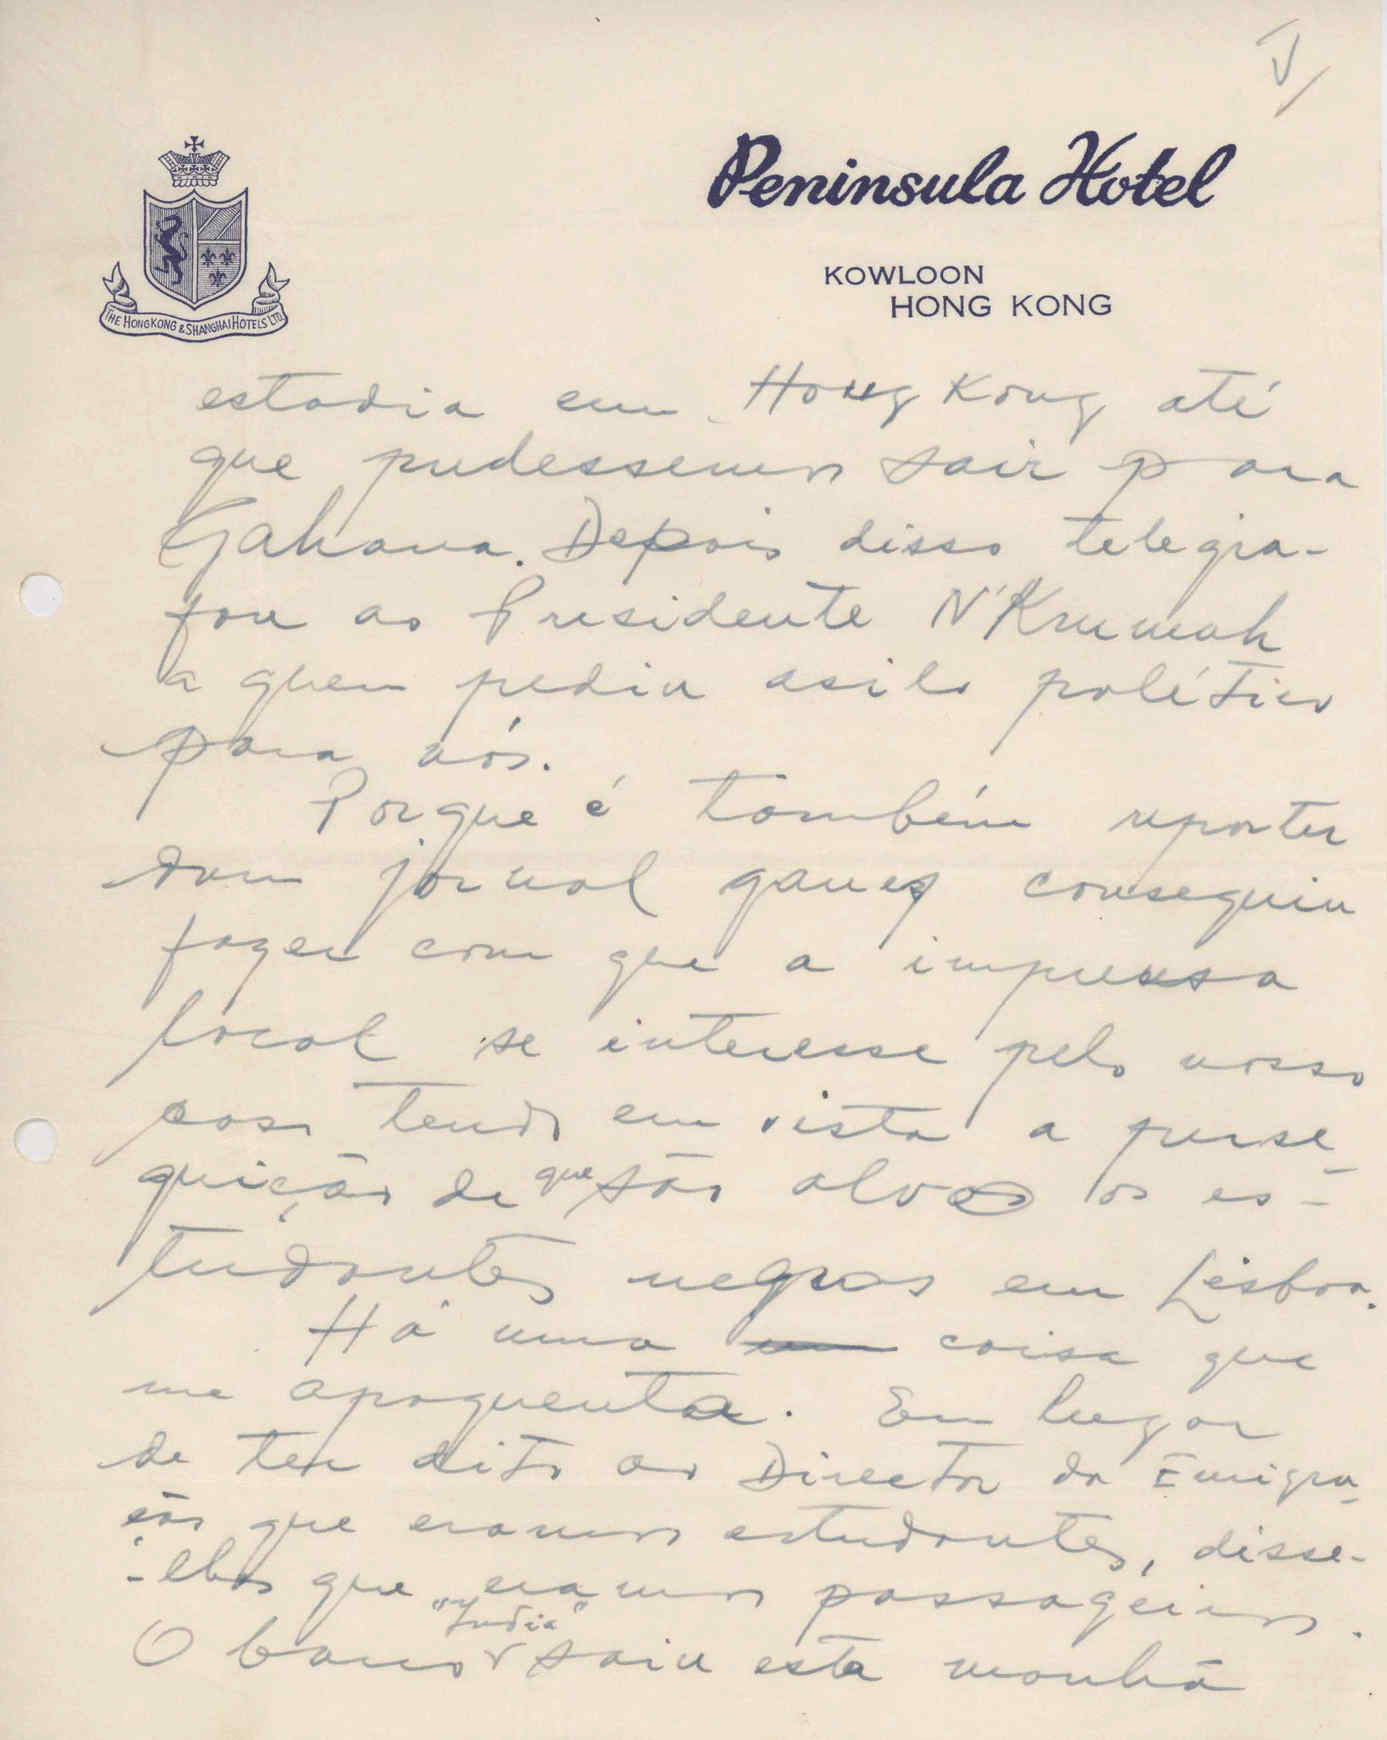 V/
Peninsula Hotel
KOWLOON
HONG KONG
THE HONGKONG & SHANGHAI HOTELS LTD.
estadia em Hong Kong até
que pudessemos sair para
Gahana. Depois disso telegra-
fou ao Presidente N'Krumah
a quem pediu asilo político
para nós.
Porque é também reporter
dum jornal ganês conseguiu
fazer com que a imprensa
local se interesse pelo nosso
caso tendo em vista a perse-
guição de que são alvos os es-
tudantes negros em Lisboa.
Há uma um coisa que
me apoquenta. Em lugar
de ter dito ao Director da Emigra-
ção que eramos estudantes, disse-
-lhes que eramos passageiros.
O barco "India" saiu esta manhã